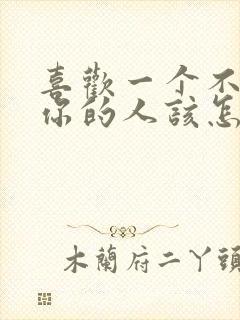 喜歡一个不
你的人該怎
木蘭府二丫頭